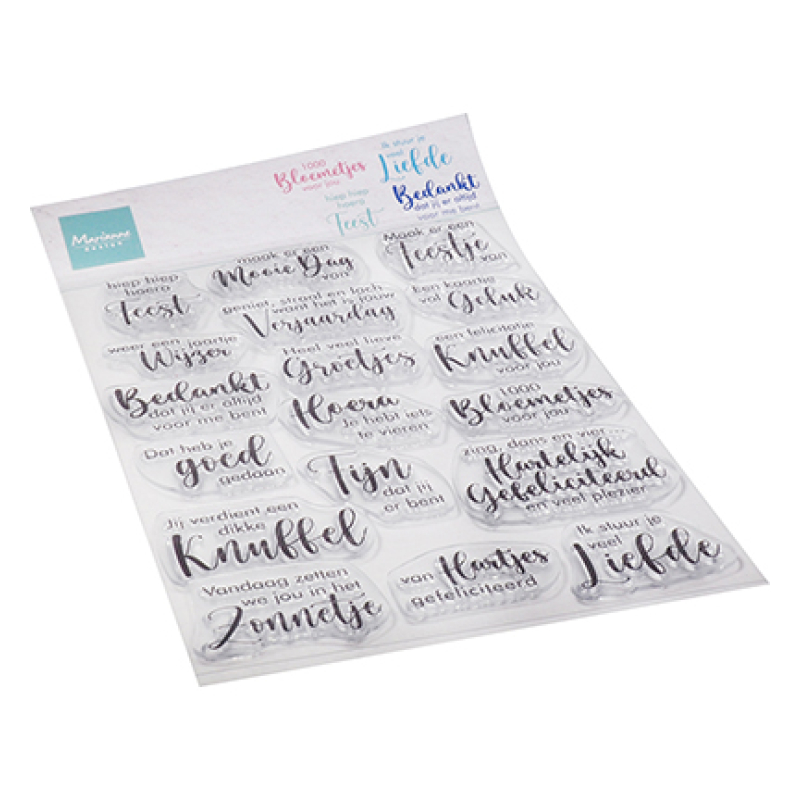 Marianne
DESIGN
1000
Bloemetjes
voor jou
Ik stuur je
veel
Liefde
hiep hiep
hoera
Feest
Bedankt
dat jij er altijd
voor me bent
hiep hiep
hoera
Feest
maak er een
Mooie Dag
van
Maak er een
Feestje
van
geniet, straal en lach
want het is jouw
Verjaardag
Een kaartje
vol Geluk
weer een jaartje
Wijzer
Heel veel lieve
Groetjes
een felicitatie
Knuffel
voor jou
Bedankt
dat jij er altijd
voor me bent
Hoera
Je hebt iets
te vieren
1000
Bloemetjes
voor jou
Dat heb je
goed
gedaan
Fijn
dat jij
er bent
zing, dans en vier...
Hartelijk
Gefeliciteerd
en veel plezier
Jij verdient een
dikke
Knuffel
Vandaag zetten
we jou in het
Zonnetje
van Hartjes
gefeliciteerd
Ik stuur je
veel
Liefde